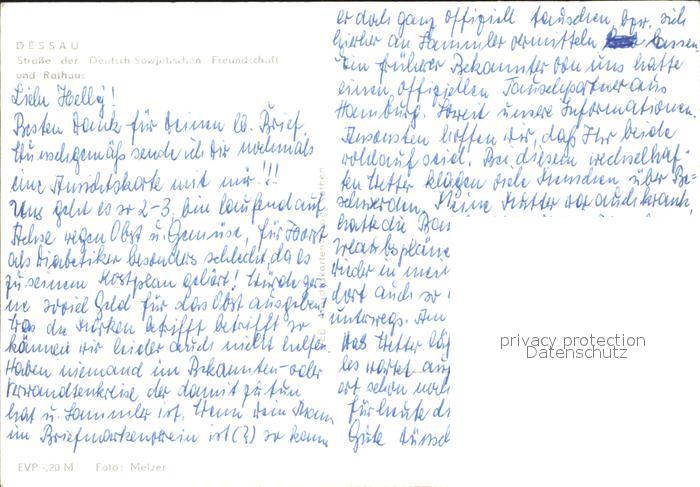 DESSAU
Straße der Deutsch-Sowjetischen Freundschaft
und Rathaus
Liebe Helly!
Besten Dank für Deinen lb. Brief.
Wunschgemäß sende ich Dir nochmals
eine Ansichtskarte mit mir!!!
Uns geht es so 2-3, bin laufend auf
Achse wegen Obst u. Gemüse, für Horst
als Diabetiker besonders schlecht, da es
zu seinem Kostplan gehört! Würde ger-
ne soviel Geld für das Obst ausgeben!
Was die Marken betrifft betrifft so
können wir leider auch nicht helfen.
Haben niemand im Bekannten- oder
Verwandtenkreise der damit zu tun
hat u. Sammler ist. Wenn Dein Mann
im Briefmarkenverein ist (?) so kann
EVP -,20 M Foto: Melzer
er doch ganz offiziell tauschen, bzw. sich
hierher an Sammler vermitteln lassen.
Ein früherer Bekannter von uns hatte
einen offiziellen Tauschpartner aus
Hamburg. Soweit unsere Informationen.
Ansonsten hoffen wir, daß Ihr beide
wohlauf seid. Bei diesem wechselhaf-
ten Wetter klagen viele Menschen über Be-
schwerden. Meine Mutter war auch krank,
hatte die
dort auch so
unterwegs.
Das Wetter
les wartet
ist schon noch
Für heute
Gute
privacy protection
Datenschutz